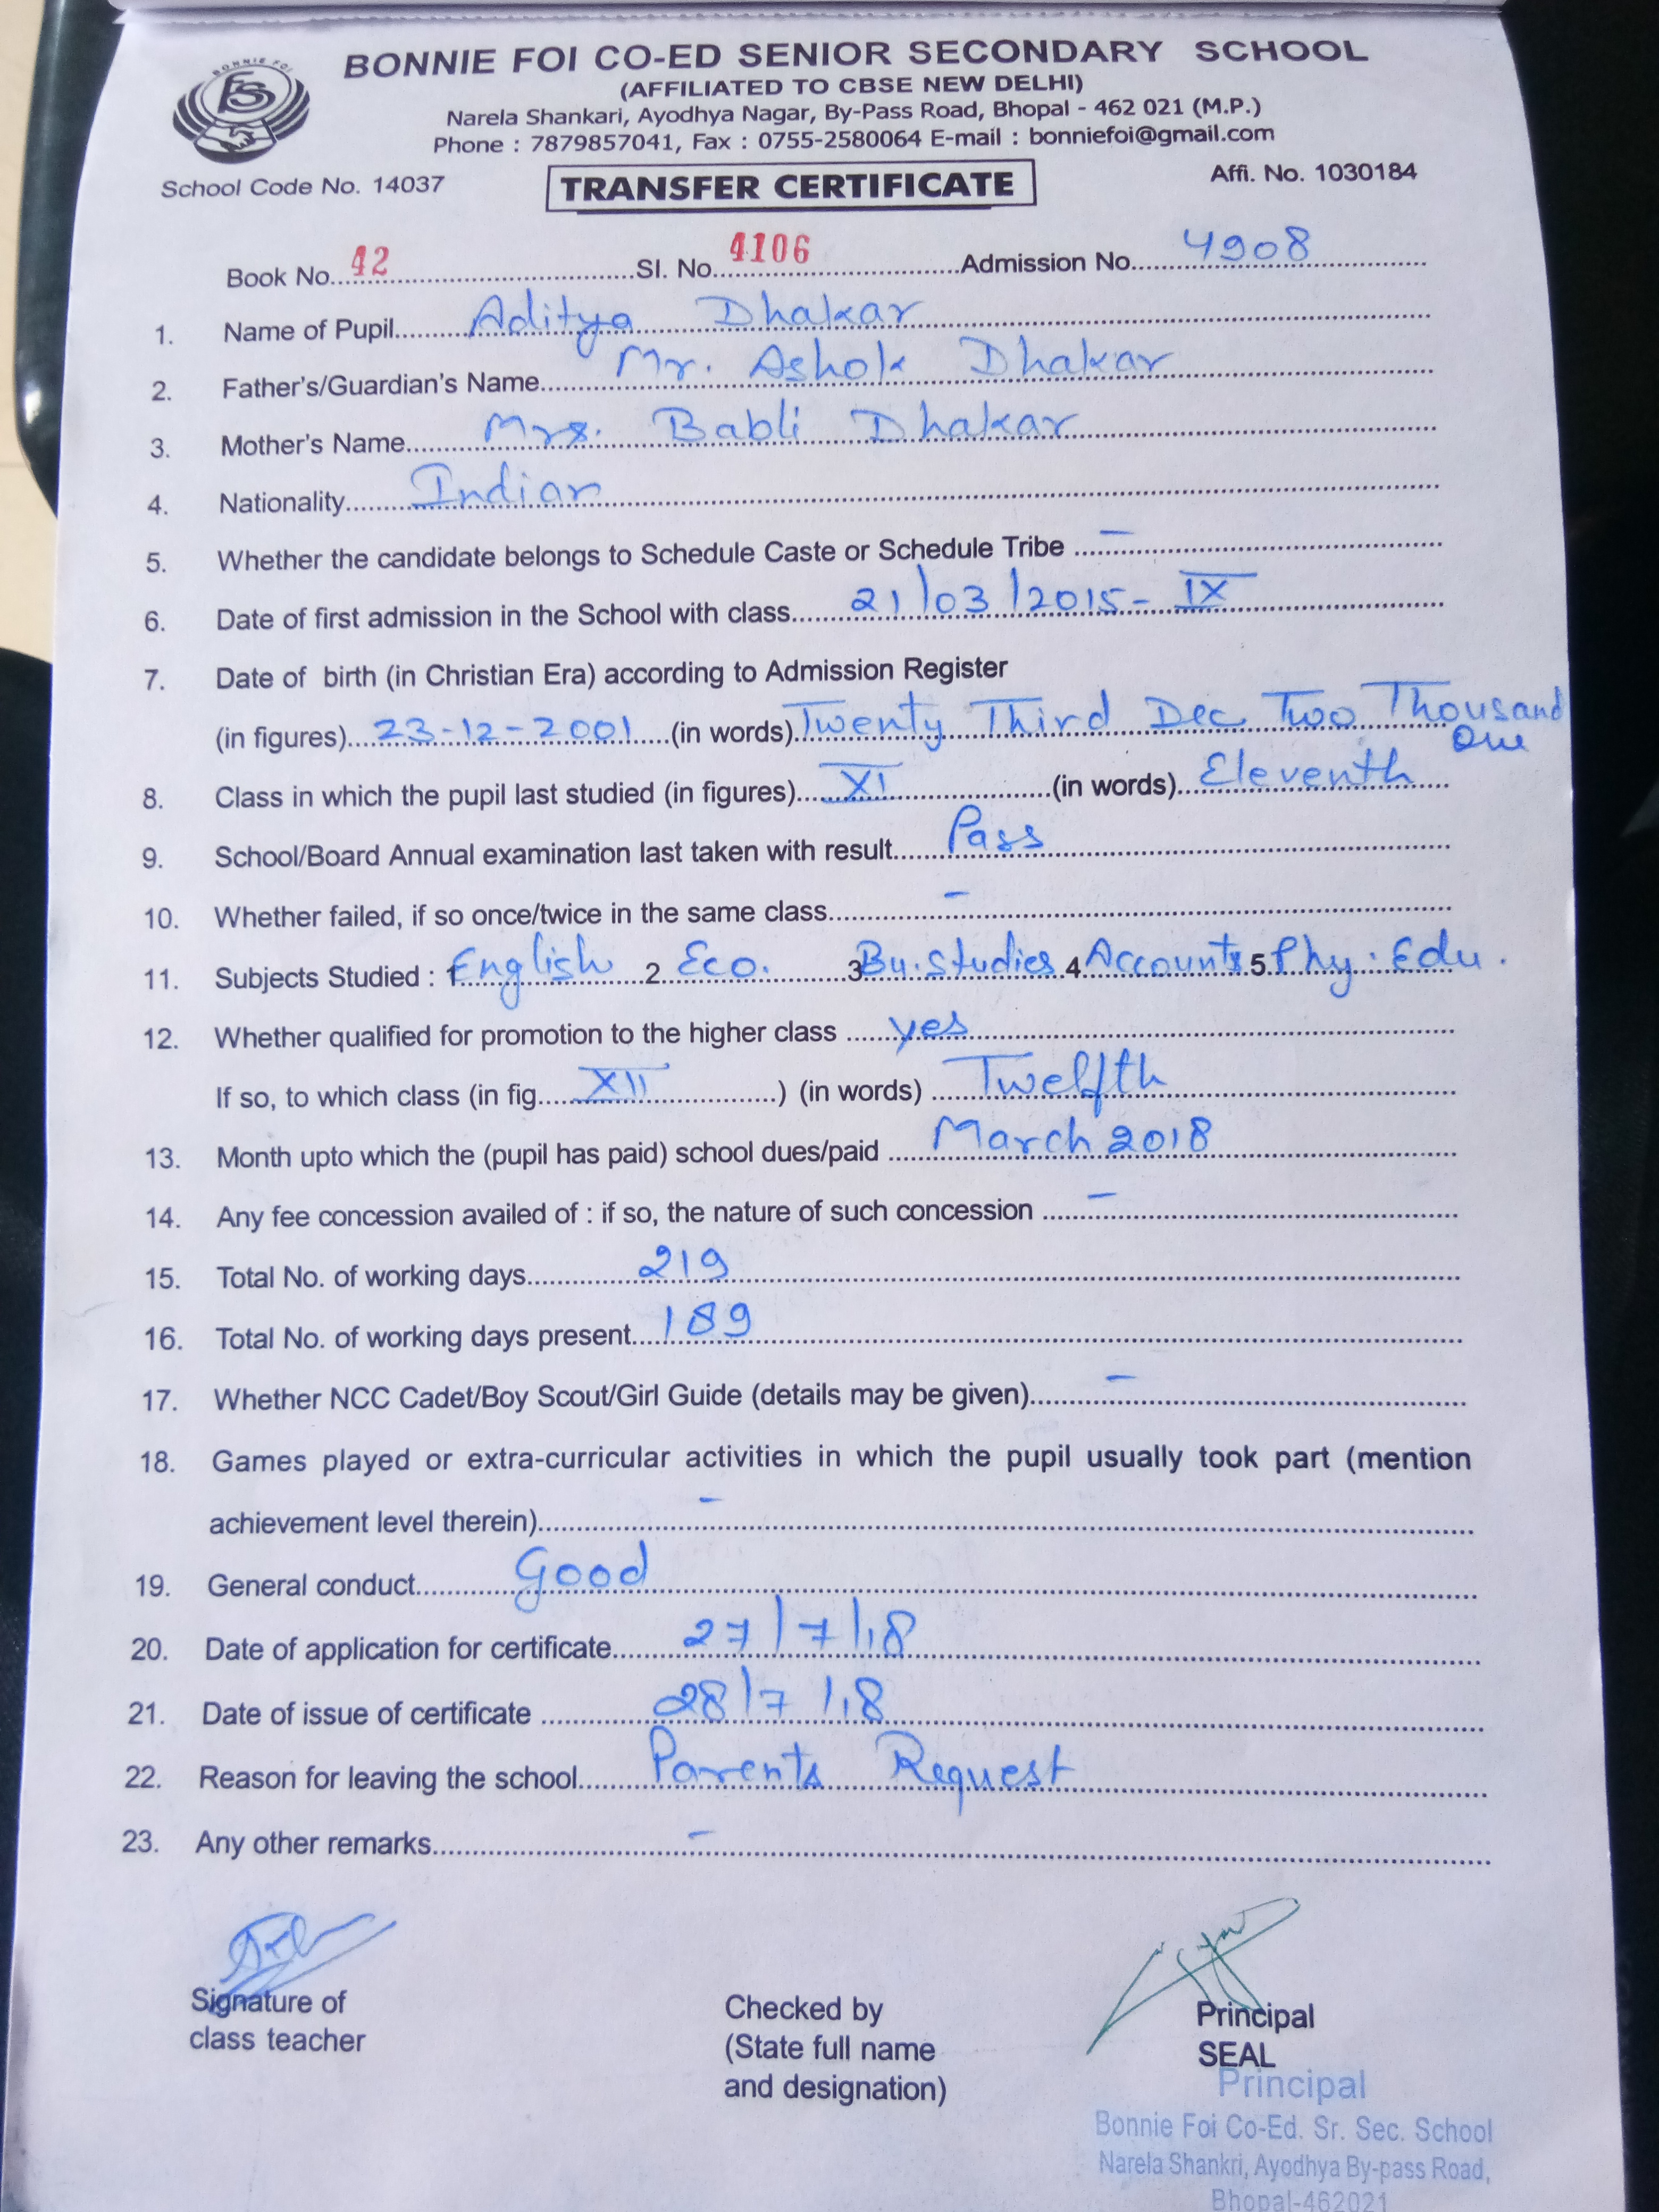 BONNIE FOI
BONNIE FOI CO-ED SENIOR SECONDARY SCHOOL
(AFFILIATED TO CBSE NEW DELHI)
Narela Shankari, Ayodhya Nagar, By-Pass Road, Bhopal - 462 021 (M.P.)
Phone : 7879857041, Fax : 0755-2580064 E-mail : bonniefoi@gmail.com
School Code No. 14037 TRANSFER CERTIFICATE Affi. No. 1030184
Book No. 42 Sl. No. 4106 Admission No. 4908
1. Name of Pupil Aditya Dhakar
2. Father's/Guardian's Name Mr. Ashok Dhakar
3. Mother's Name Mrs. Babli Dhakar
4. Nationality Indian
5. Whether the candidate belongs to Schedule Caste or Schedule Tribe –
6. Date of first admission in the School with class 21/03/2015 - IX
7. Date of birth (in Christian Era) according to Admission Register
(in figures) 23-12-2001 (in words) Twenty Third Dec Two Thousand
One
8. Class in which the pupil last studied (in figures) XI (in words) Eleventh
9. School/Board Annual examination last taken with result Pass
10. Whether failed, if so once/twice in the same class –
11. Subjects Studied : 1 English 2 Eco. 3 Bu. Studies 4 Accounts 5 Phy. Edu.
12. Whether qualified for promotion to the higher class yes
If so, to which class (in fig. XII ) (in words) Twelfth
13. Month upto which the (pupil has paid) school dues/paid March 2018
14. Any fee concession availed of : if so, the nature of such concession –
15. Total No. of working days 219
16. Total No. of working days present 189
17. Whether NCC Cadet/Boy Scout/Girl Guide (details may be given) –
18. Games played or extra-curricular activities in which the pupil usually took part (mention
achievement level therein) –
19. General conduct Good
20. Date of application for certificate 27/7/18
21. Date of issue of certificate 28/7/18
22. Reason for leaving the school Parents Request
23. Any other remarks –
Signature of
class teacher
Checked by
(State full name
and designation)
Principal
SEAL
Principal
Bonnie Foi Co-Ed. Sr. Sec. School
Narela Shankri, Ayodhya By-pass Road,
Bhopal-462021